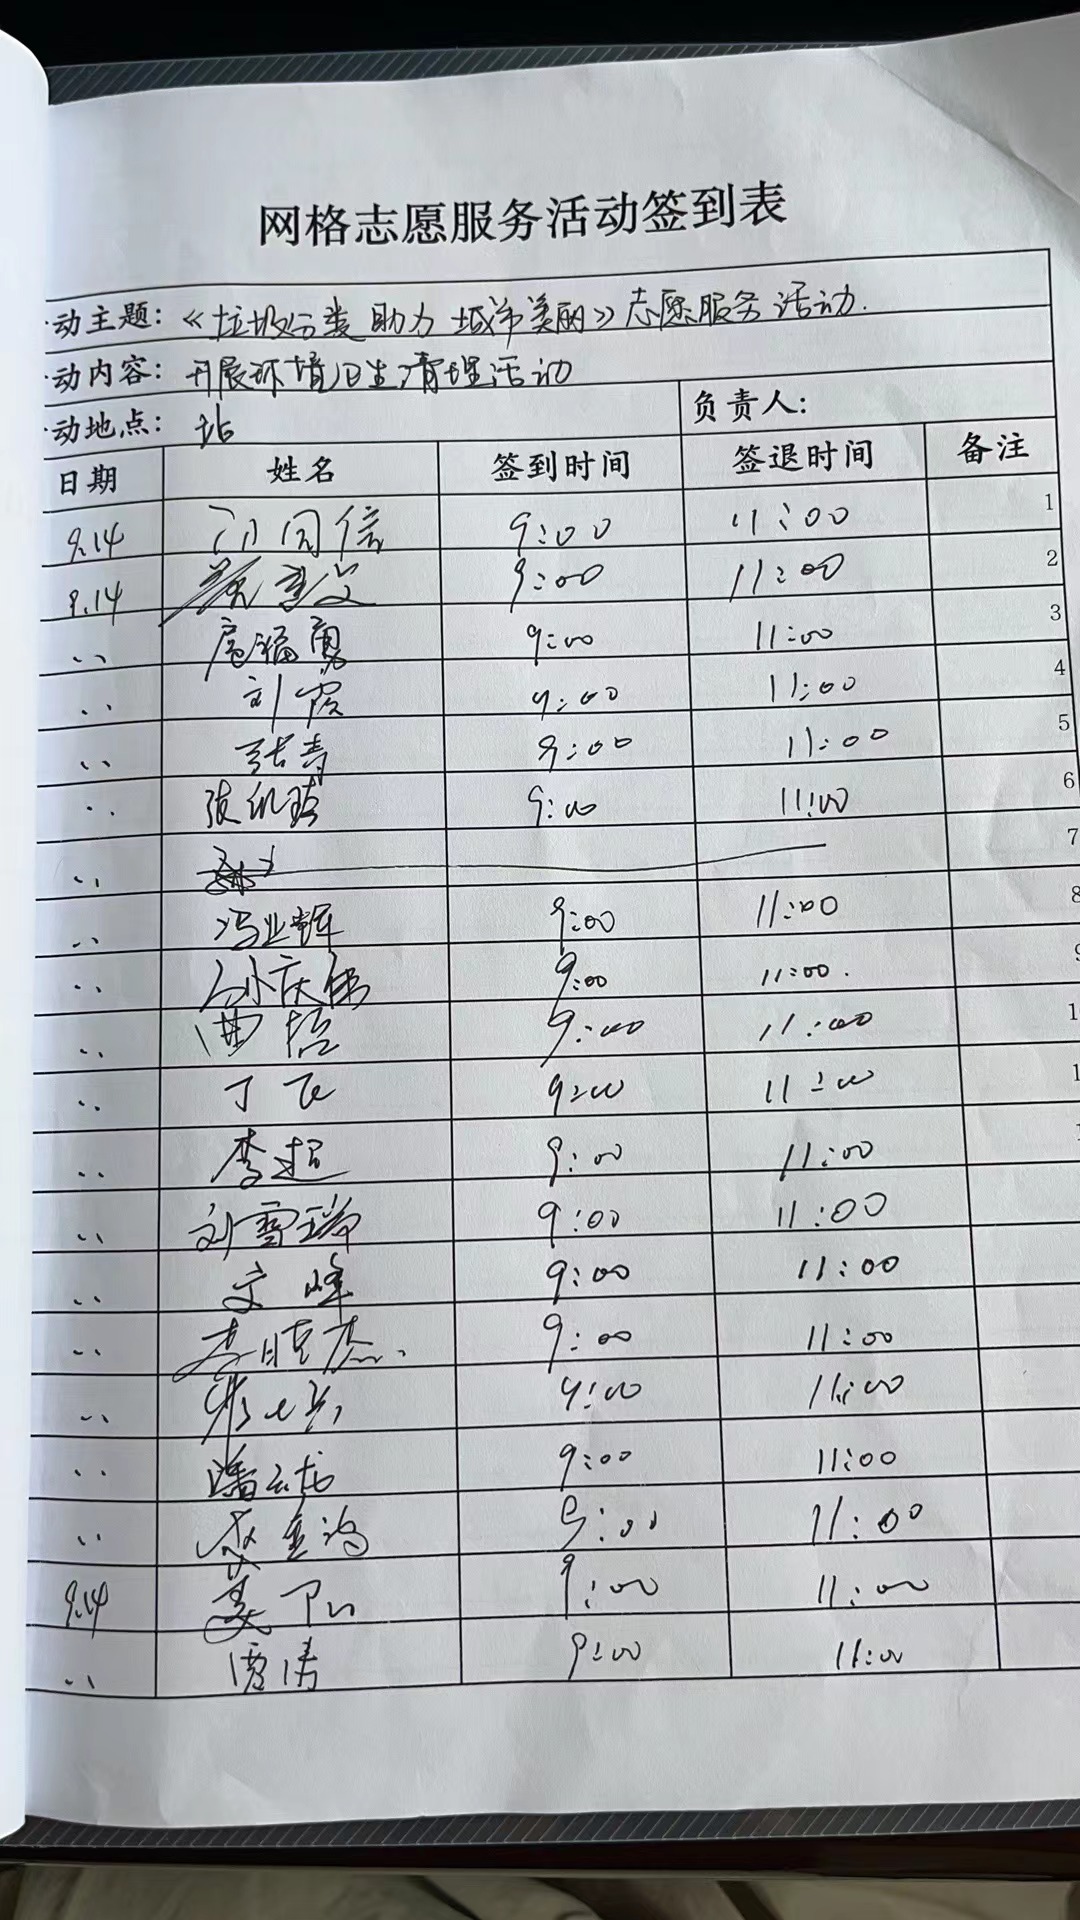 网格志愿服务活动签到表
动主题：《垃圾分类 助力 城市美丽》志愿服务活动.
动内容：开展环境卫生清理活动
动地点：站 负责人：
日期 姓名 签到时间 签退时间 备注
9.14 门同信 9:00 11:00 1
9.14 9:00 11:00 2
〃 福勇 9:00 11:00 3
〃 刘霞 9:00 11:00 4
〃 张青 9:00 11:00 5
〃 9:00 11:00 6
〃 7
〃 冯业辉 9:00 11:00 8
〃 孙庆伟 9:00 11:00.
〃 曲 9:00 11:00 1
〃 丁飞 9:00 11:00 1
〃 李超 9:00 11:00
〃 刘雪瑞 9:00 11:00
〃 文峰 9:00 11:00
〃 李晓杰. 9:00 11:00
〃 9:00 11:00
〃 潘云龙 9:00 11:00
〃 9:00 11:00
9.14 姜 9:00 11:00
〃 贾涛 9:00 11:00